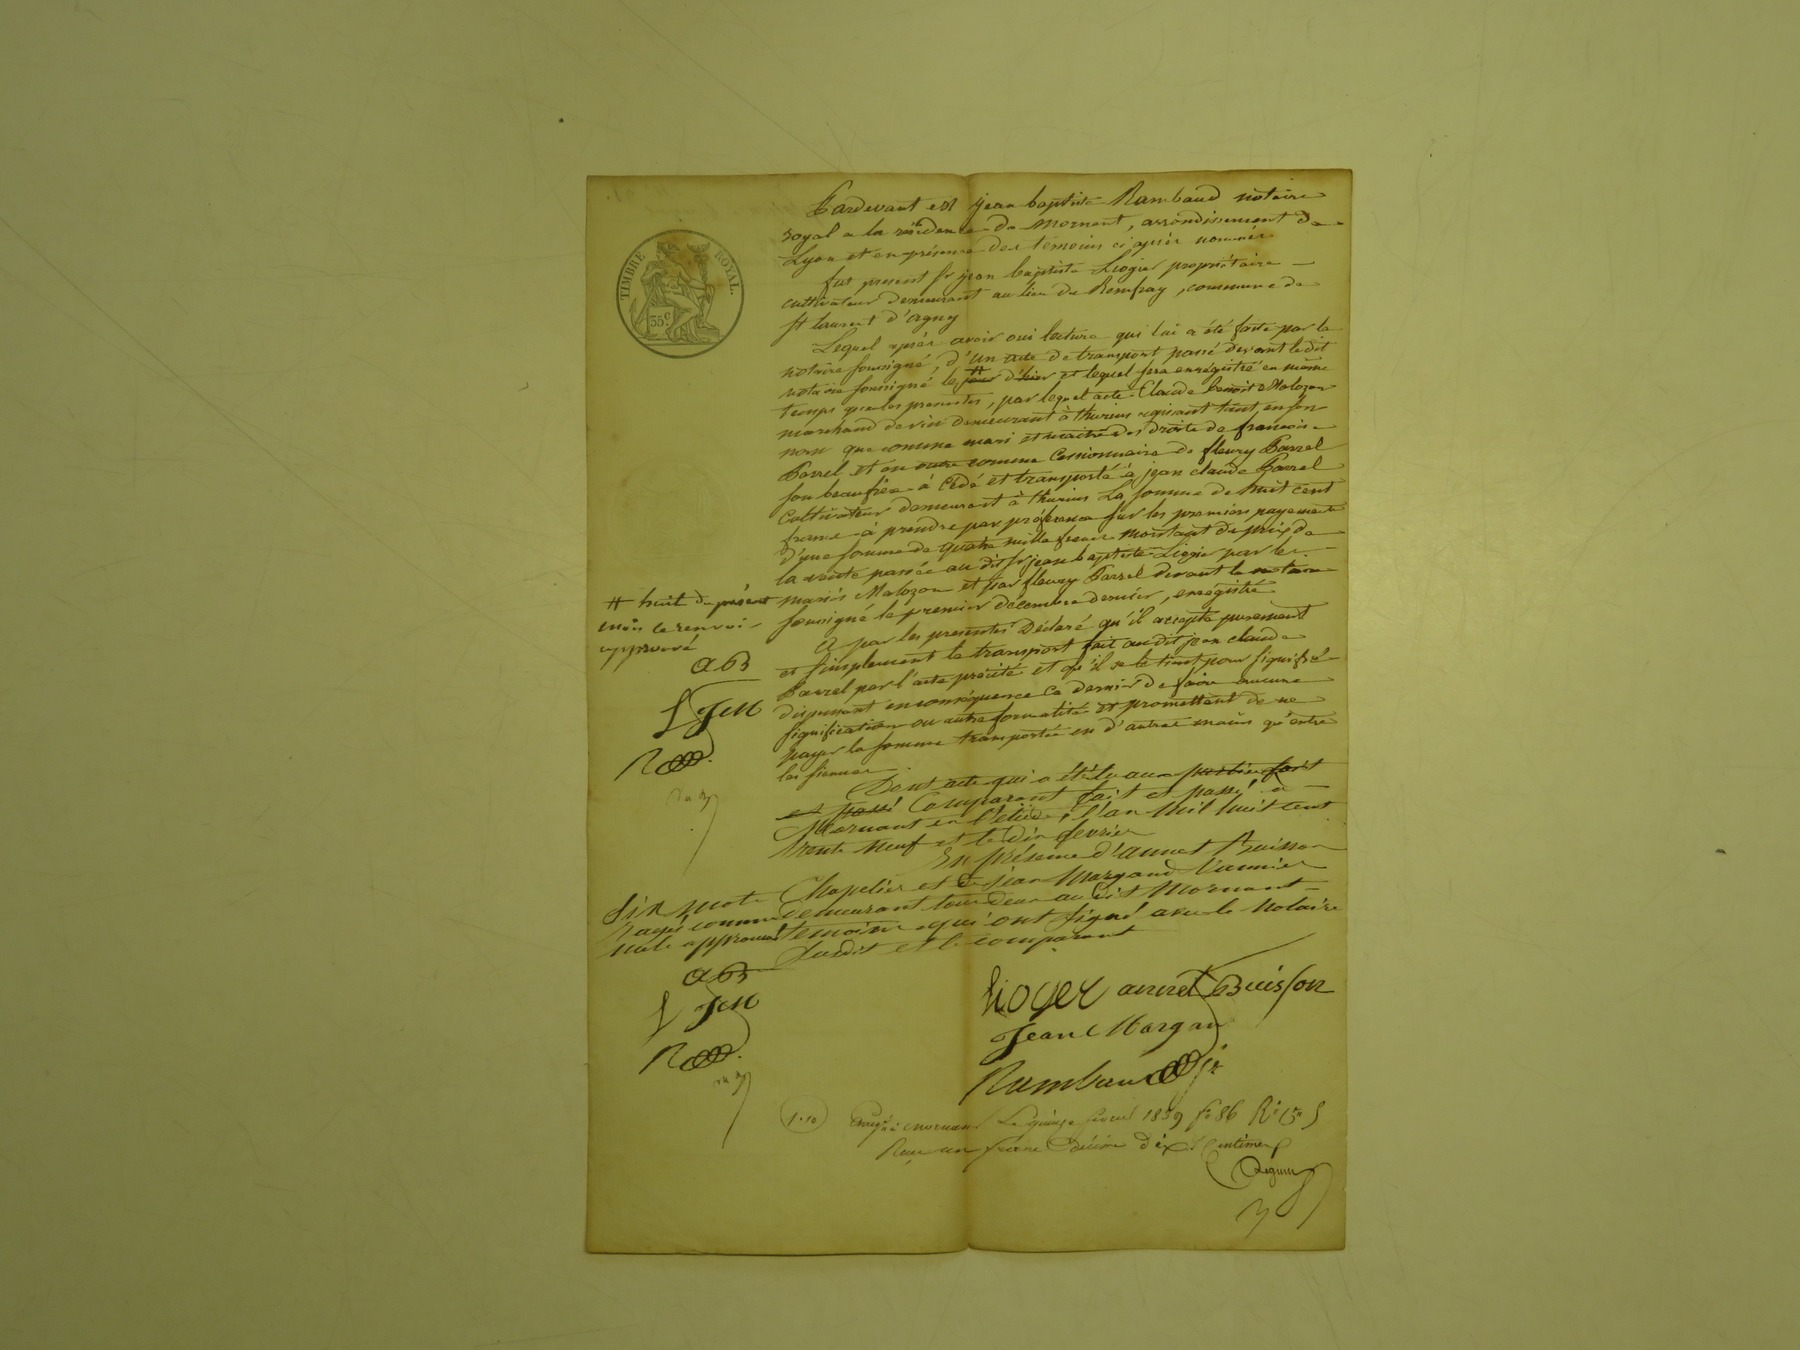 TIMBRE ROYAL.
35 c.
Pardevant est jean baptiste Rambaud notaire
royal a la résidence de Mornant, arrondissement de
Lyon et en présence des témoins ci après nommés
fut present sr jean baptiste Liogier propriétaire
cultivateur demeurant au lieu de Remfray, commune de
st laurent d'agny
Lequel après avoir oui lecture qui lui a été faite par le
notaire soussigné, d'un acte de transport passé devant ledit
notaire soussigné le # jour d'hier et lequel sera enregistré en même
temps que les presentes, par lequel acte Claude benoit Malozon
marchand de vin demeurant à thurins agissant tant en son
nom que comme mari et maitre des droits de francoise
Barrel et en outre comme Cessionnaire de fleury Barrel
son beaufrère à Cédé et transporté à jean claude Barrel
Cultivateur demeurant à thurins La somme de huit cent
francs à prendre par préférence sur les premiers payements
d'une somme de quatre mille francs montant du prix de
la vente passée au dit sr jean baptiste Liogier par les
mariés Malozon et par fleury Barrel devant le notaire
soussigné le premier décembre dernier, enregistré
# huit du présent
mois le renvoi
approuvé
a B
L JCM
R
A par les presentes Déclaré qu'il accepte purement
et simplement le transport fait au dit jean claude
Barrel par l'acte précité et qu'il se le tient pour signifié
dispensant en conséquence ce dernier de faire aucune
signification ou autre formalité et promettant de ne
payer la somme transportée en d'autres mains qu'entre
les siennes
Dont acte qui a été lu aux parties fait
et passé Comparant fait et passé à
Mornant en l'étude, l'an Mil huit cent
trente neuf et le dix fevrier
En présence d'annet Buisson
Chapelier et de jean Margand Vannier
demeurant tous deux au dit Mornant
Témoins qui ont signé avec le Notaire
Susdit et le comparant
Six mots
rayés comme
nuls approuvés
a B
L JCM
R
Lioger annet Buisson
Jean Margan
Rambaud
1.10 Enregé à Mornant Le quinze fevrier 1839 fo 86 Ro
Reçu un franc décime dix Centimes